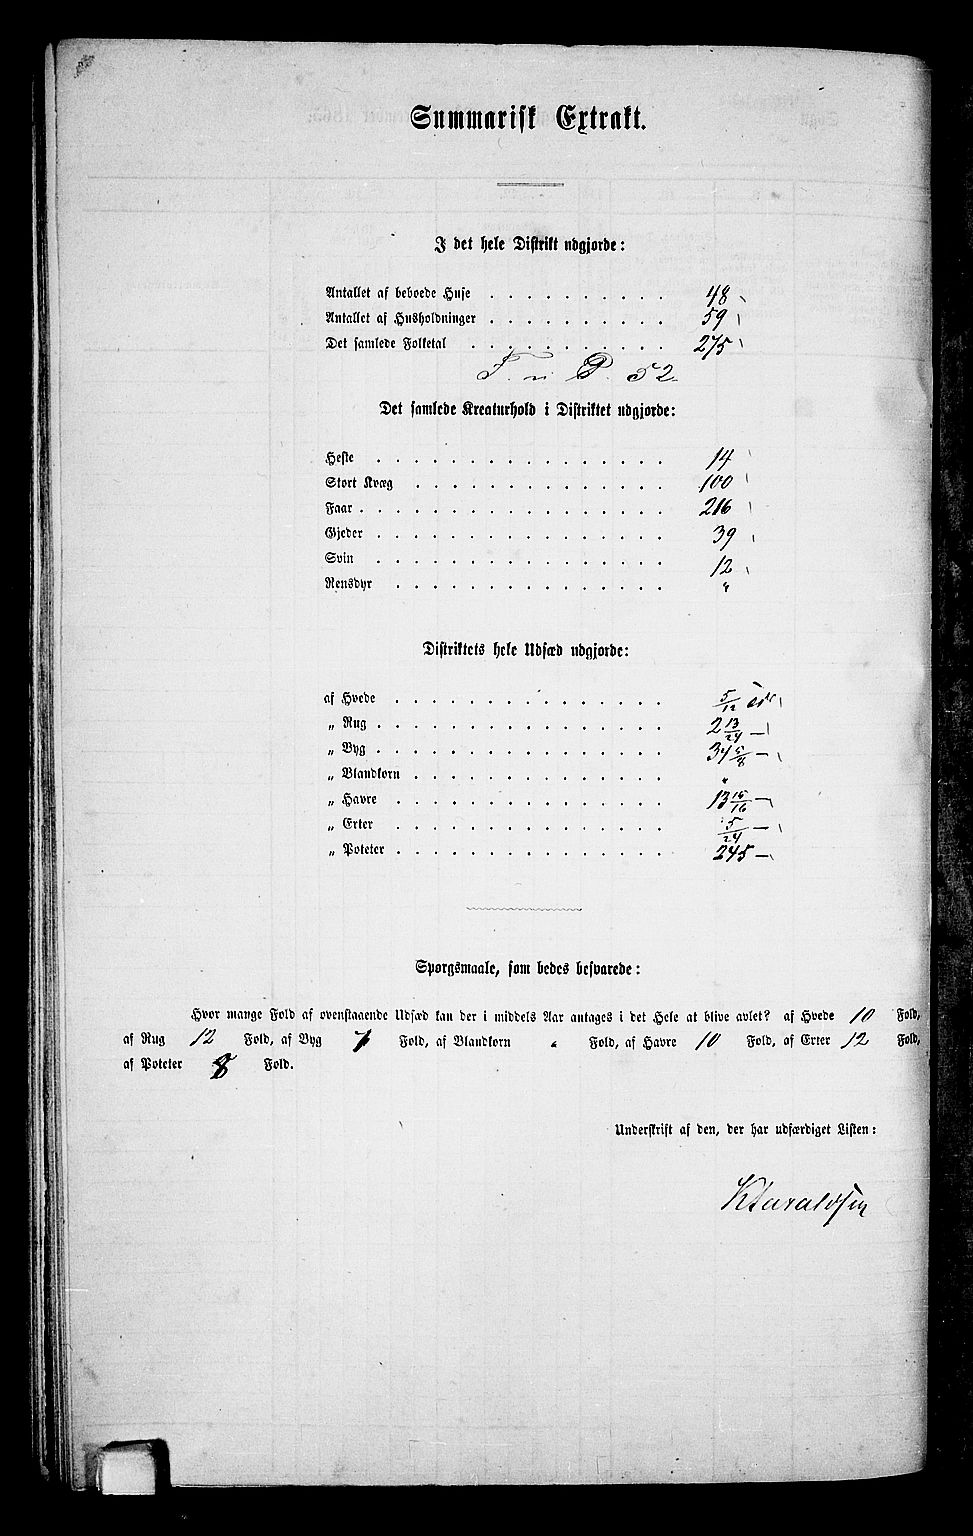 Summarisk Extrakt.
I det hele Distrikt udgjorde:
Antallet af beboede Huse . . . . . . . . . . 48
Antallet af Husholdninger . . . . . . . . . . 59
Det samlede Folketal . . . . . . . . . . . 275
F. n. P. 52.
Det samlede Kreaturhold i Distriktet udgjorde:
Heste . . . . . . . . . . . . . . . . 14
Stort Kvæg . . . . . . . . . . . . . . 100
Faar . . . . . . . . . . . . . . . . . 216
Gjeder . . . . . . . . . . . . . . . . 39
Svin . . . . . . . . . . . . . . . . 12
Rensdyr . . . . . . . . . . . . . . . "
Distriktets hele Udsæd udgjorde:
af Hvede . . . . . . . . . . . . . . . 5/12
" Rug . . . . . . . . . . . . . . . . 2 13/24 —
" Byg . . . . . . . . . . . . . . . . 34 5/8 —
" Blandkorn . . . . . . . . . . . . . . "
" Havre . . . . . . . . . . . . . . . 13 15/16 —
" Erter . . . . . . . . . . . . . . . 5/24 —
" Poteter . . . . . . . . . . . . . . . 245 —
Spørgsmaale, som bedes besvarede:
Hvor mange Fold af ovenstaaende Udsæd kan der i middels Aar antages i det Hele at blive avlet? af Hvede 10 Fold,
af Rug 12 Fold, af Byg 7 Fold, af Blandkorn " Fold, af Havre 10 Fold, af Erter 12 Fold,
af Poteter 8 Fold.
Underskrift af den, der har udfærdiget Listen:
K Haraldsen